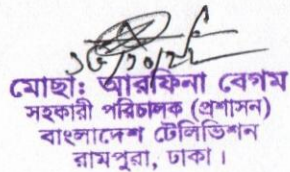 ১৬/১০/২২
মোছা: আরফিনা বেগম
সহকারী পরিচালক (প্রশাসন)
বাংলাদেশ টেলিভিশন
রামপুরা, ঢাকা।